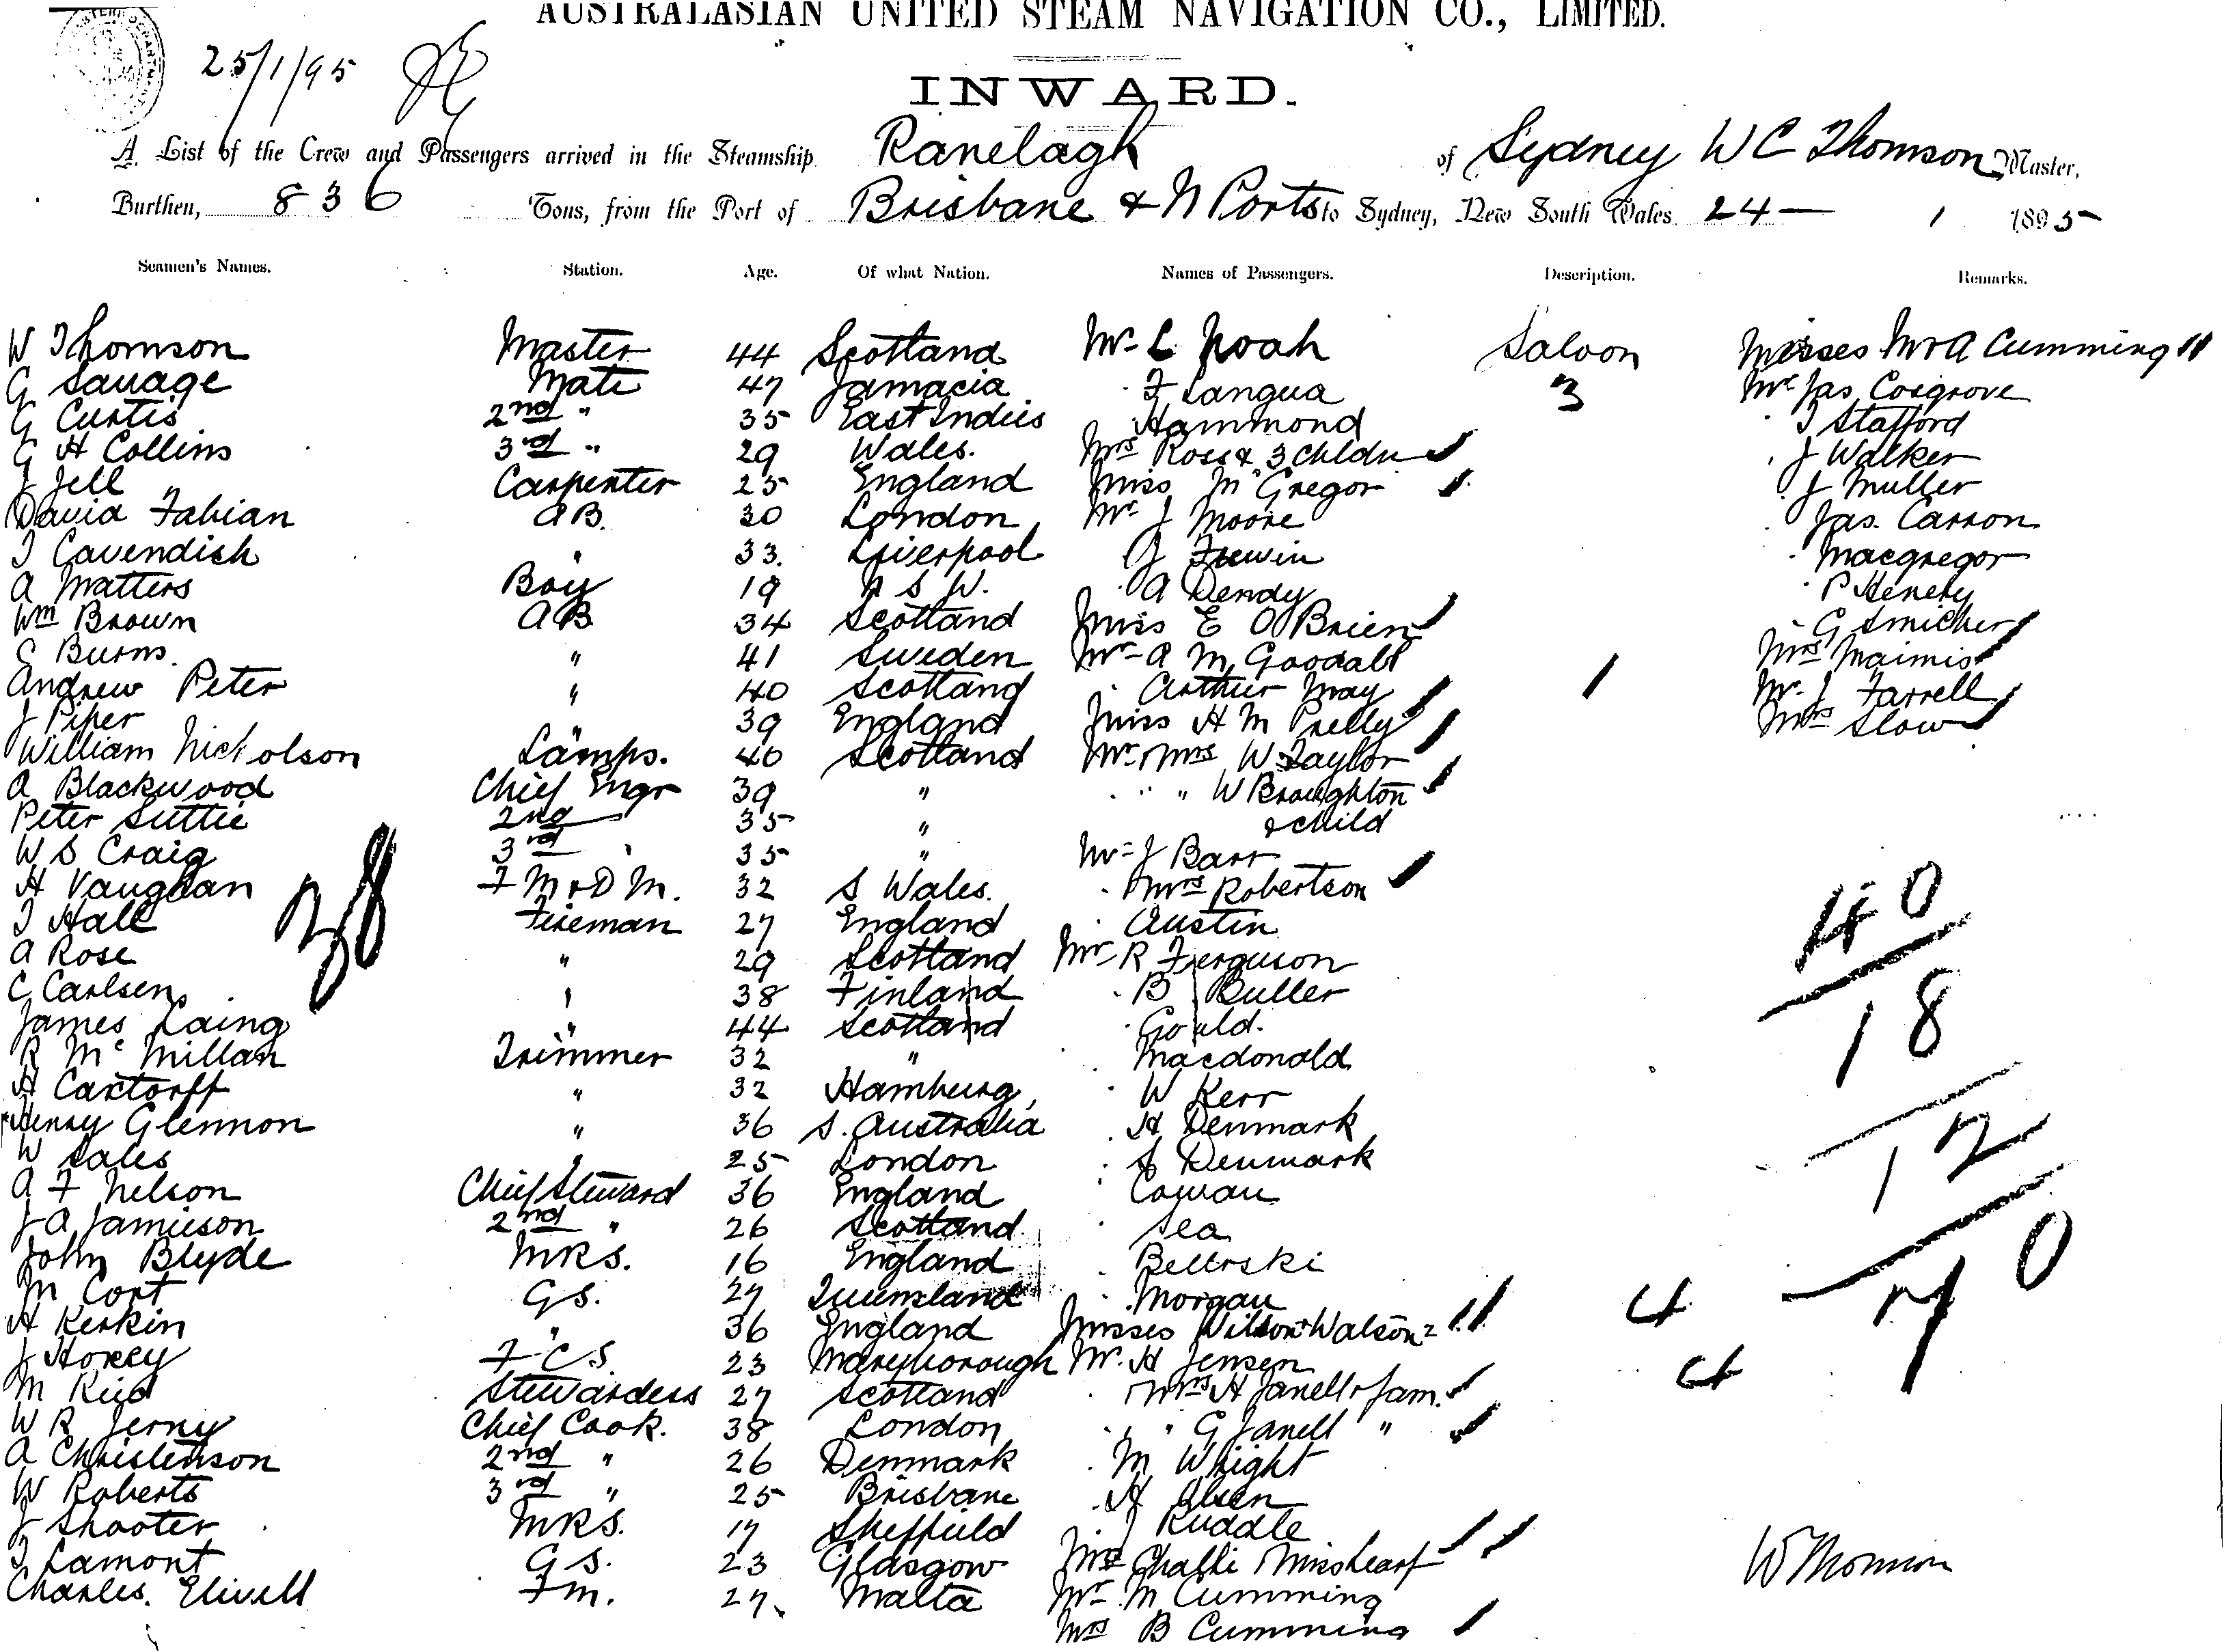 AUSTRALASIAN UNITED STEAM NAVIGATION CO., LIMITED.
25/1/95
INWARD.
A List of the Crew and Passengers arrived in the Steamship Ranelagh of Sydney W C Thomson Master,
Burthen, 836 Tons, from the Port of Brisbane & N Ports to Sydney, New South Wales 24 — 1 1895
Seamen's Names. Station. Age. Of what Nation. Names of Passengers. Description. Remarks.
W Thomson Master 44 Scotland Mr L Noah Saloon Misses M & A Cumming 11
G Savage Mate 47 Jamacia " F Langua 3 Mr Jas Cosgrove
G Curtis 2nd " 35 East Indies Hammond " T Stafford
G H Collins 3rd " 29 Wales. Mrs Ross & 3 Childn " J Walker
J Jell Carpenter 25 England Miss McGregor " J Muller
David Fabian AB. 30 London Mr J Moore " Jas. Carson
T Cavendish " 33. Liverpool " J Frewin " Macgregor
A Matters Boy 19 N S W. " A Dendy " P Henery
Wm Brown AB 34 Scotland Miss E O Brien " G Smicher
C Burns. " 41 Sweden Mr A M Goodall Mrs Maimis
Andrew Peter " 40 Scotland " Arthur May 1 Mr. J Farrell
J Piper " 39 England Miss H M Prelly Mrs Slow
William Nicholson Lamps. 40 Scotland Mr & Mrs W Taylor
A Blackwood Chief Engr 39 " " " " W Broughton
Peter Suttie 2nd 35 " & child
W S Craig 3rd " 35 " Mr J Barr
H Vaughan F M & D M. 32 S Wales. " Mrs Robertson 40
T Hall 38 Fireman 27 England " Austin
A Rose " 29 Scotland Mr R Ferguson
C Carlsen " 38 Finland " B Buller 18
James Laing " 44 Scotland " Gould.
R McMillan Trimmer 32 " " Macdonald
H Cartorff " 32 Hamburg " W Kerr
Henry Glennon " 36 S. Australia " H Denmark
W Sales " 25 London " S Denmark 12
A F Nelson Chief Steward 36 England " Cowan
J A Jamieson 2nd " 26 Scotland " Lea
John Blyde MRS. 16 England " Beltrski 70
M Cort GS. 27 Queensland " Morgan
H Kerkin " 36 England Misses Wilson & Watson 2 11 4
J Hoxey F C S 23 Maryborough Mr. H Jensen
M Reid Stewardess 27 Scotland " & Mrs H Janell & fam. 4
W R Jerny Chief Cook. 38 London " " " G Janell "
A Christenson 2nd " 26 Denmark " M Wright
W Roberts 3rd " 25 Brisbane " H Olsen
J Shooter MRS. 17 Sheffield " J Ruddle
T Lamont G S. 23 Glasgow
Charles. Elwell Fm. 27. Malta Mr M Cumming
Mrs B Cumming
W Thomson